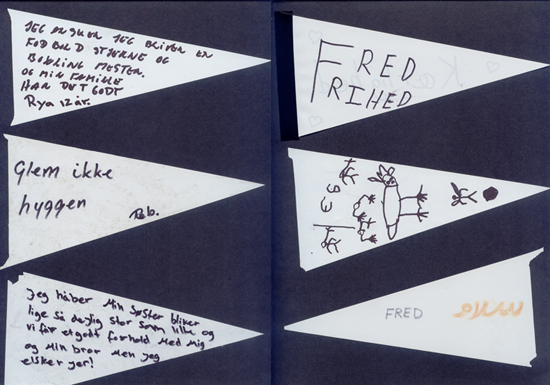 JEG ØNSKER JEG BLIVER EN
FODBOLD STJERNE OG
BOWLING MESTER.
OG MIN FAMILIE
HAR DET GODT
Rya 12 år.
Glem ikke
hyggen
Bb.
Jeg håber Min Søster bliver
lige så dejlig stor som lille og
vi får et godt forhold Med Mig
og Min bror Men jeg
elsker jer!
FRED
FRIHED
FRED